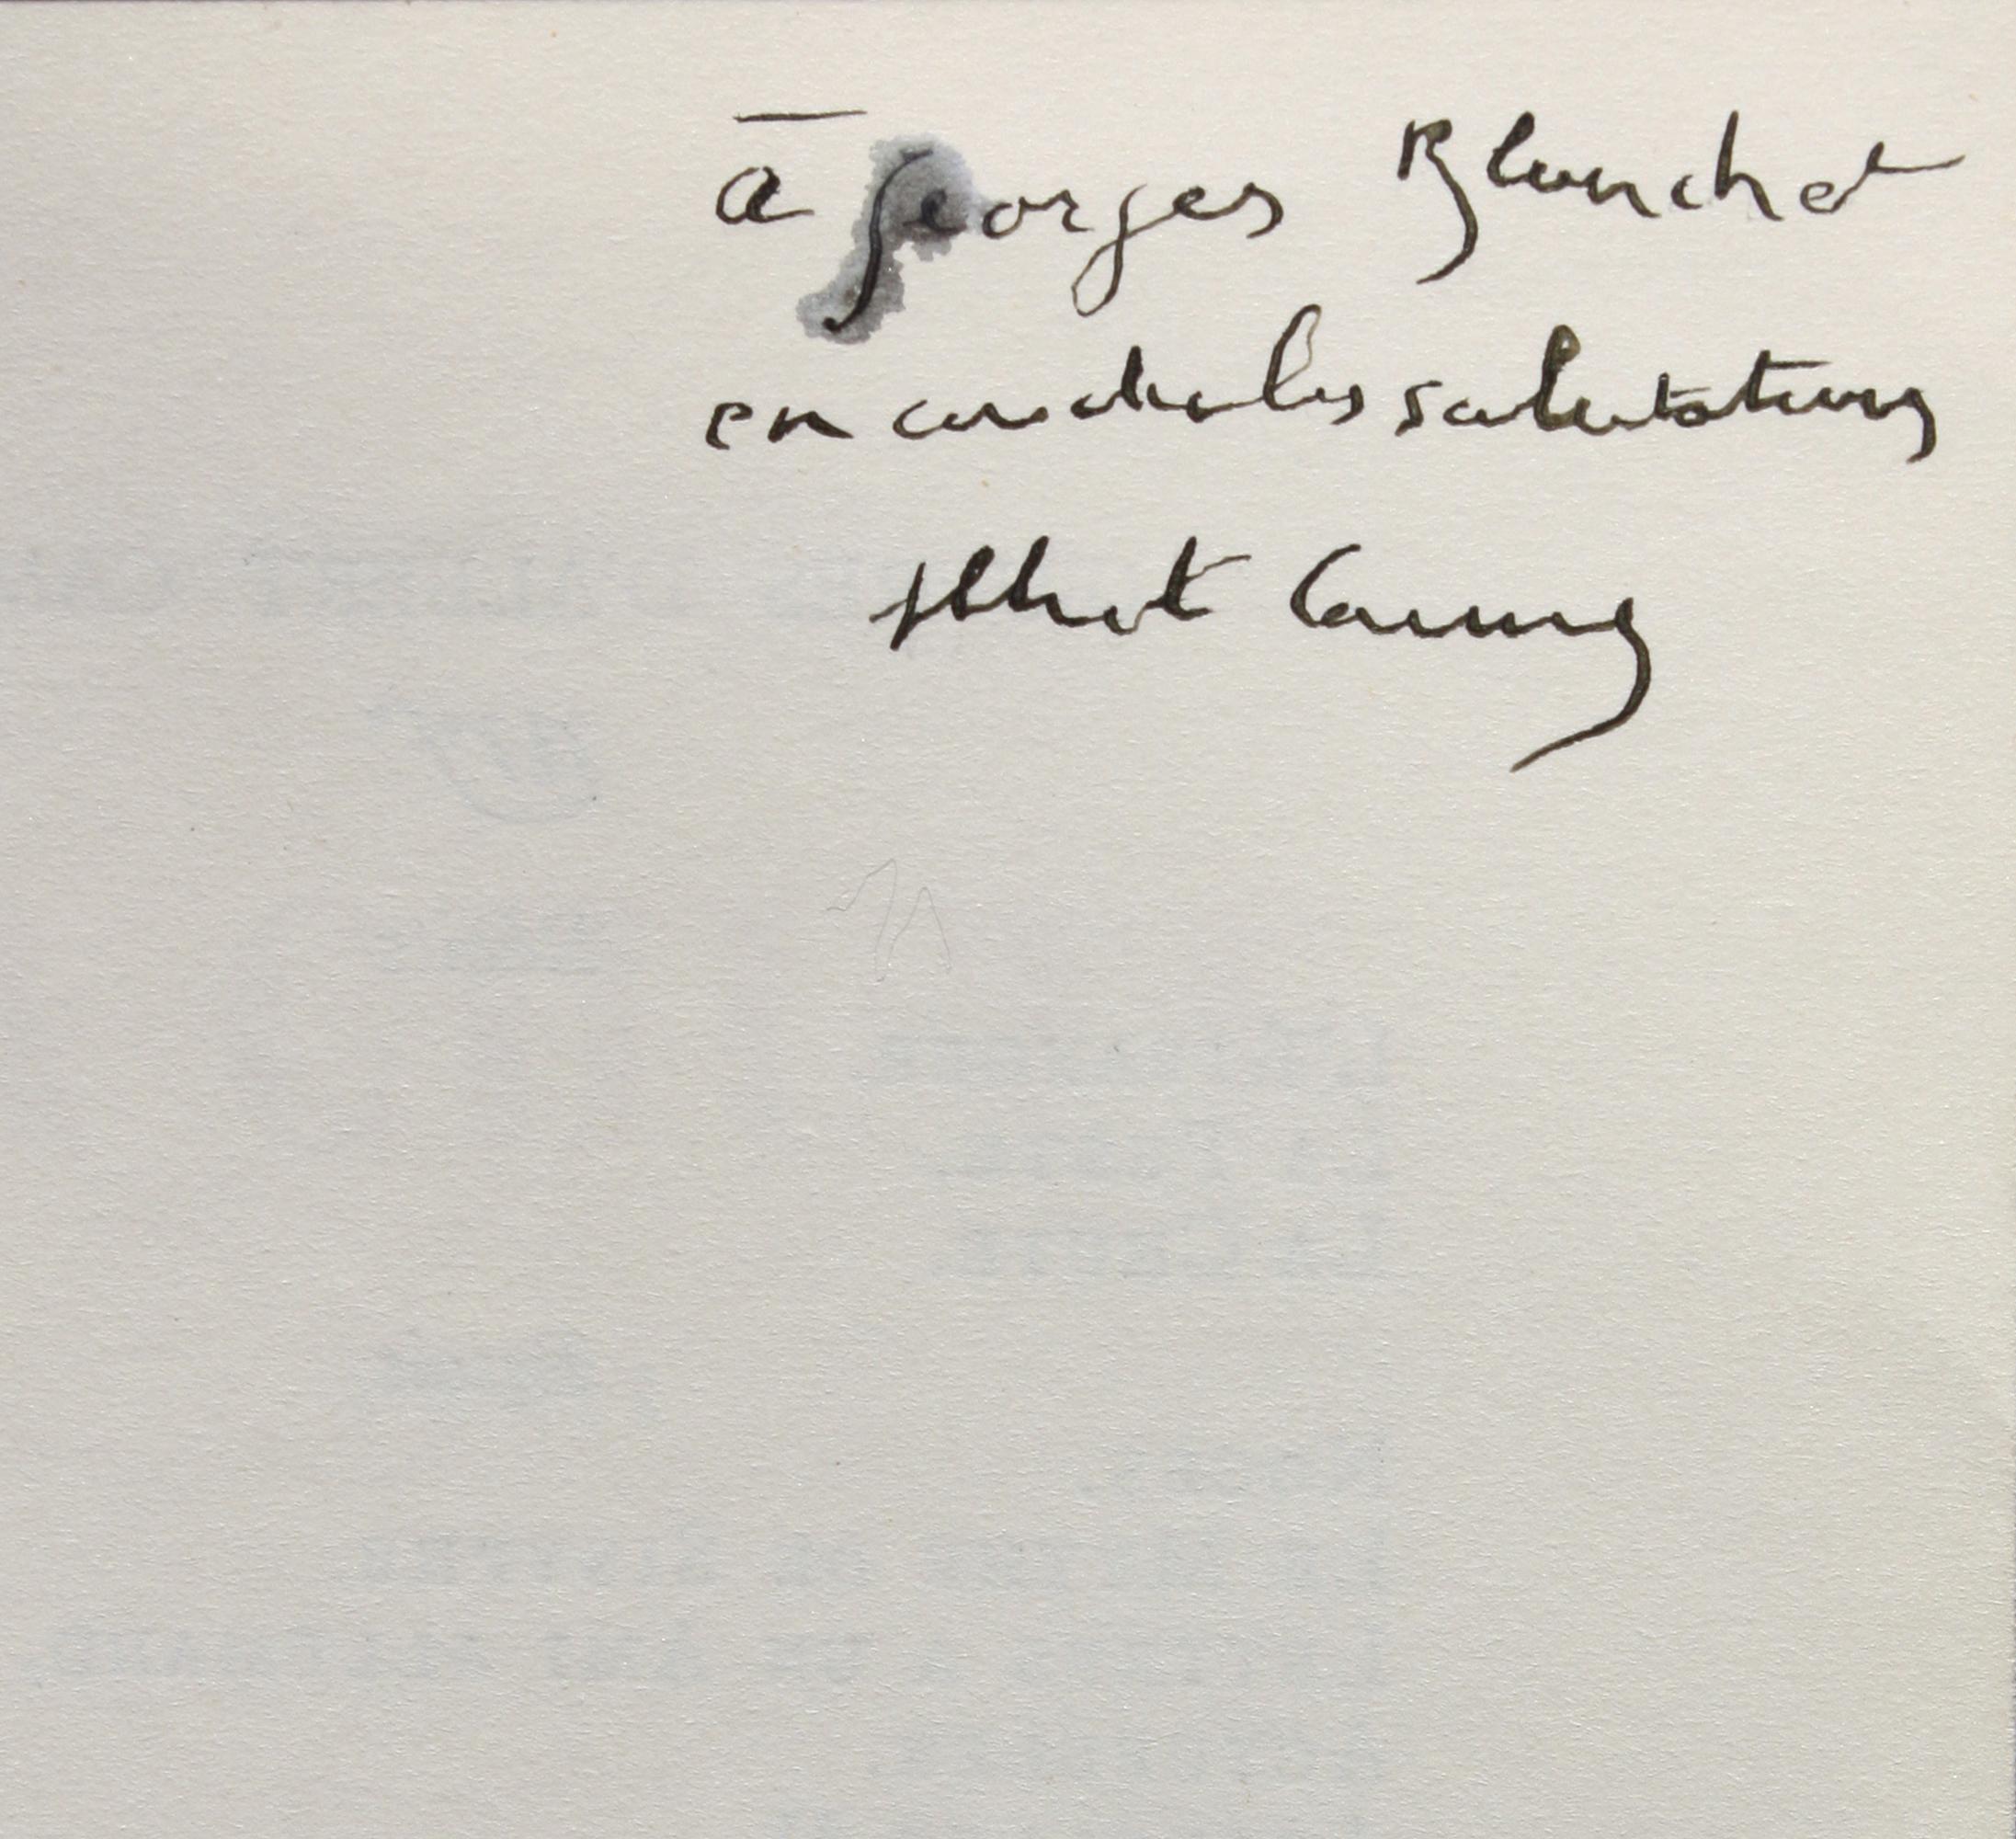 à Georges Blanchet
en cordiales salutations
Albert Camus